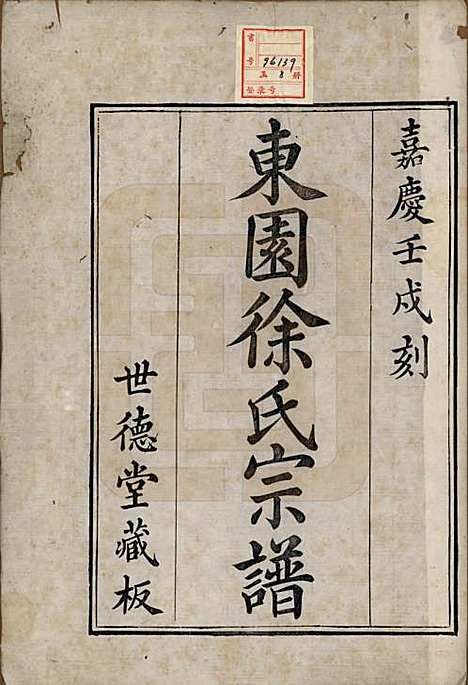 嘉慶壬戌刻
東園徐氏宗譜
世德堂藏板
書號 96139
共 8 册
登录号